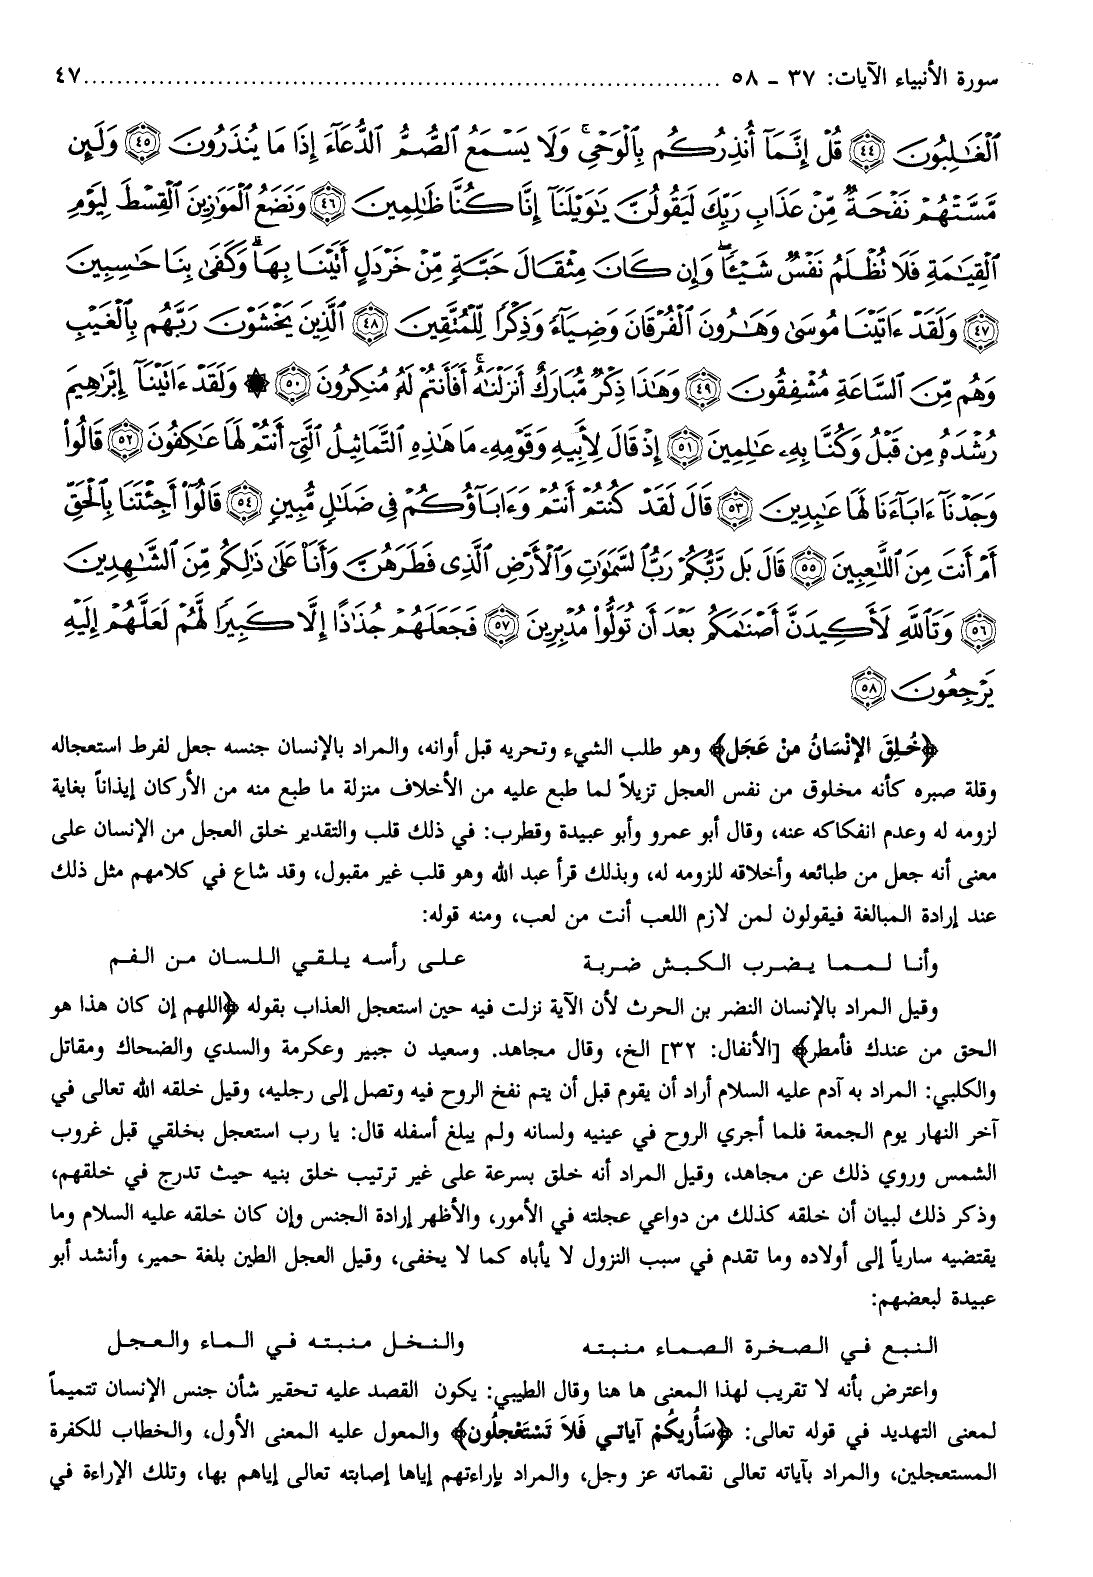 سورة الأنبياء الآيات: ٣٧ - ٥٨ ........................................................................ ٤٧
ٱلْغَـٰلِبُونَ ﴿٤٤﴾ قُلْ إِنَّمَآ أُنذِرُكُم بِٱلْوَحْىِ ۚ وَلَا يَسْمَعُ ٱلصُّمُّ ٱلدُّعَآءَ إِذَا مَا يُنذَرُونَ ﴿٤٥﴾ وَلَئِن
مَّسَّتْهُمْ نَفْحَةٌ مِّنْ عَذَابِ رَبِّكَ لَيَقُولُنَّ يَـٰوَيْلَنَآ إِنَّا كُنَّا ظَـٰلِمِينَ ﴿٤٦﴾ وَنَضَعُ ٱلْمَوَٰزِينَ ٱلْقِسْطَ لِيَوْمِ
ٱلْقِيَـٰمَةِ فَلَا تُظْلَمُ نَفْسٌ شَيْـًٔا ۖ وَإِن كَانَ مِثْقَالَ حَبَّةٍ مِّنْ خَرْدَلٍ أَتَيْنَا بِهَا ۗ وَكَفَىٰ بِنَا حَـٰسِبِينَ
﴿٤٧﴾ وَلَقَدْ ءَاتَيْنَا مُوسَىٰ وَهَـٰرُونَ ٱلْفُرْقَانَ وَضِيَآءً وَذِكْرًا لِّلْمُتَّقِينَ ﴿٤٨﴾ ٱلَّذِينَ يَخْشَوْنَ رَبَّهُم بِٱلْغَيْبِ
وَهُم مِّنَ ٱلسَّاعَةِ مُشْفِقُونَ ﴿٤٩﴾ وَهَـٰذَا ذِكْرٌ مُّبَارَكٌ أَنزَلْنَـٰهُ ۚ أَفَأَنتُمْ لَهُۥ مُنكِرُونَ ﴿٥٠﴾ ۞ وَلَقَدْ ءَاتَيْنَآ إِبْرَٰهِيمَ
رُشْدَهُۥ مِن قَبْلُ وَكُنَّا بِهِۦ عَـٰلِمِينَ ﴿٥١﴾ إِذْ قَالَ لِأَبِيهِ وَقَوْمِهِۦ مَا هَـٰذِهِ ٱلتَّمَاثِيلُ ٱلَّتِىٓ أَنتُمْ لَهَا عَـٰكِفُونَ ﴿٥٢﴾ قَالُوا۟
وَجَدْنَآ ءَابَآءَنَا لَهَا عَـٰبِدِينَ ﴿٥٣﴾ قَالَ لَقَدْ كُنتُمْ أَنتُمْ وَءَابَآؤُكُمْ فِى ضَلَـٰلٍ مُّبِينٍ ﴿٥٤﴾ قَالُوٓا۟ أَجِئْتَنَا بِٱلْحَقِّ
أَمْ أَنتَ مِنَ ٱللَّـٰعِبِينَ ﴿٥٥﴾ قَالَ بَل رَّبُّكُمْ رَبُّ ٱلسَّمَـٰوَٰتِ وَٱلْأَرْضِ ٱلَّذِى فَطَرَهُنَّ وَأَنَا۠ عَلَىٰ ذَٰلِكُم مِّنَ ٱلشَّـٰهِدِينَ
﴿٥٦﴾ وَتَٱللَّهِ لَأَكِيدَنَّ أَصْنَـٰمَكُم بَعْدَ أَن تُوَلُّوا۟ مُدْبِرِينَ ﴿٥٧﴾ فَجَعَلَهُمْ جُذَٰذًا إِلَّا كَبِيرًا لَّهُمْ لَعَلَّهُمْ إِلَيْهِ
يَرْجِعُونَ ﴿٥٨﴾
﴿خُلِقَ الإنْسَانُ منْ عَجَل﴾ وهو طلب الشيء وتحريه قبل أوانه، والمراد بالإنسان جنسه جعل لفرط استعجاله
وقلة صبره كأنه مخلوق من نفس العجل تزيلاً لما طبع عليه من الأخلاف منزلة ما طبع منه من الأركان إيذاناً بغاية
لزومه له وعدم انفكاكه عنه، وقال أبو عمرو وأبو عبيدة وقطرب: في ذلك قلب والتقدير خلق العجل من الإنسان على
معنى أنه جعل من طبائعه وأخلاقه للزومه له، وبذلك قرأ عبد الله وهو قلب غير مقبول، وقد شاع في كلامهم مثل ذلك
عند إرادة المبالغة فيقولون لمن لازم اللعب أنت من لعب، ومنه قوله:
وأنا لـمـمـا يـضـرب الـكـبـش ضـربـة عـلـى رأسـه يـلـقـي الـلـسـان مـن الـفـم
وقيل المراد بالإنسان النضر بن الحرث لأن الآية نزلت فيه حين استعجل العذاب بقوله ﴿اللهم إن كان هذا هو
الحق من عندك فأمطر﴾ [الأنفال: ٣٢] الخ، وقال مجاهد. وسعيد ن جبير وعكرمة والسدي والضحاك ومقاتل
والكلبي: المراد به آدم عليه السلام أراد أن يقوم قبل أن يتم نفخ الروح فيه وتصل إلى رجليه، وقيل خلقه الله تعالى في
آخر النهار يوم الجمعة فلما أجري الروح في عينيه ولسانه ولم يبلغ أسفله قال: يا رب استعجل بخلقي قبل غروب
الشمس وروي ذلك عن مجاهد، وقيل المراد أنه خلق بسرعة على غير ترتيب خلق بنيه حيث تدرج في خلقهم،
وذكر ذلك لبيان أن خلقه كذلك من دواعي عجلته في الأمور، والأظهر إرادة الجنس وإن كان خلقه عليه السلام وما
يقتضيه سارياً إلى أولاده وما تقدم في سبب النزول لا يأباه كما لا يخفى، وقيل العجل الطين بلغة حمير، وأنشد أبو
عبيدة لبعضهم:
الـنـبـع فـي الـصـخـرة الـصـمـاء مـنـبـتـه والـنـخـل مـنـبـتـه فـي الـمـاء والـعـجـل
واعترض بأنه لا تقريب لهذا المعنى ها هنا وقال الطيبي: يكون القصد عليه تحقير شأن جنس الإنسان تتميماً
لمعنى التهديد في قوله تعالى: ﴿سَأُريكُمْ آياتي فَلاَ تَسْتَعْجلُون﴾ والمعول عليه المعنى الأول، والخطاب للكفرة
المستعجلين، والمراد بآياته تعالى نقماته عز وجل، والمراد بإراءتهم إياها إصابته تعالى إياهم بها، وتلك الإراءة في